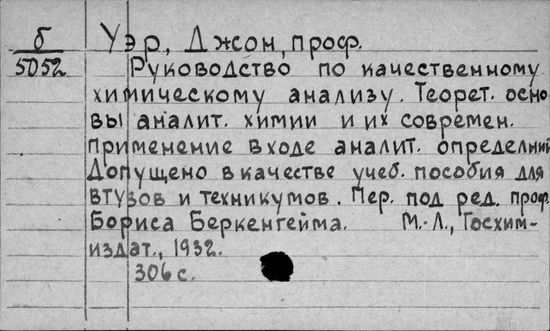 б
5052
Уэр, Джон, проф.
Руководство по качественному
химическому анализу. Теорет. осно
вы аналит. химии и их современ.
применение в ходе аналит. определний
Допущено в качестве учеб. пособия для
втузов и техникумов. Пер. под ред. проф.
Бориса Беркенгейма. М.-Л., Госхим-
издат., 1932.
306 с.